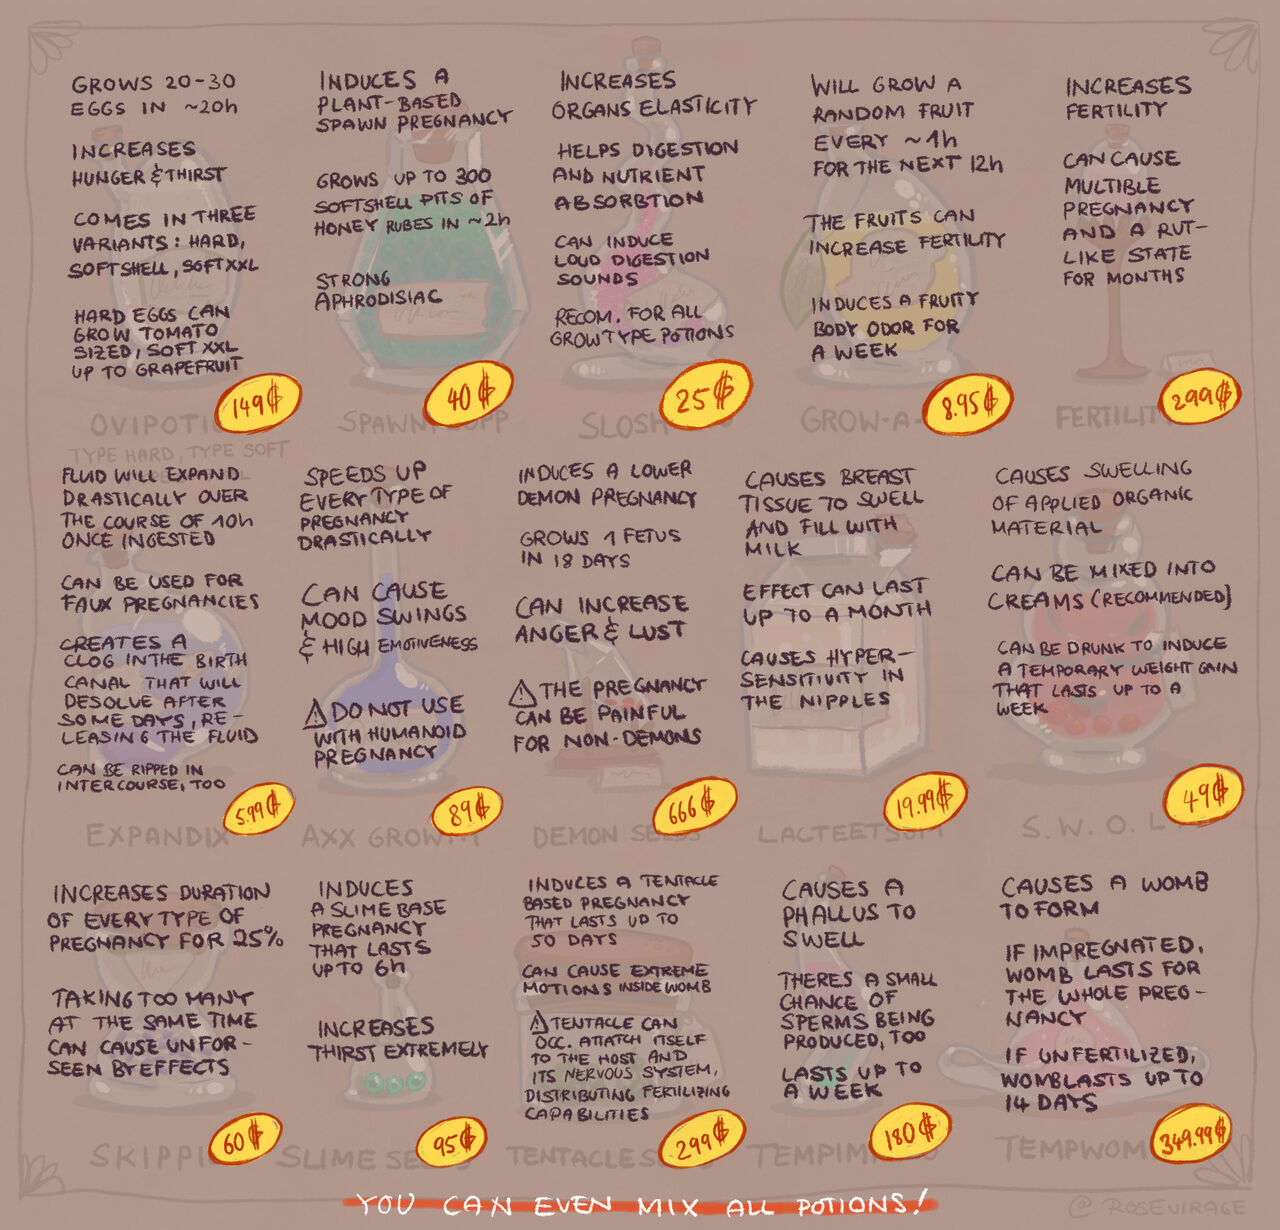 GROWS 20-30
EGGS IN ~20h
INCREASES
HUNGER & THIRST
COMES IN THREE
VARIANTS: HARD,
SOFTSHELL, SOFTXXL
HARD EGGS CAN
GROW TOMATO
SIZED, SOFT XXL
UP TO GRAPEFRUIT
149₲
INDUCES A
PLANT-BASED
SPAWN PREGNANCY
GROWS UP TO 300
SOFTSHELL PITS OF
HONEY RUBES IN ~2h
STRONG
APHRODISIAC
40₲
INCREASES
ORGANS ELASTICITY
HELPS DIGESTION
AND NUTRIENT
ABSORBTION
CAN INDUCE
LOUD DIGESTION
SOUNDS
RECOM. FOR ALL
GROWTYPE POTIONS
25₲
WILL GROW A
RANDOM FRUIT
EVERY ~1h
FOR THE NEXT 12h
THE FRUITS CAN
INCREASE FERTILITY
INDUCES A FRUITY
BODY ODOR FOR
A WEEK
8.95₲
INCREASES
FERTILITY
CAN CAUSE
MULTIBLE
PREGNANCY
AND A RUT-
LIKE STATE
FOR MONTHS
299₲
OVIPOTI
SPAWN
SLOSH
GROW-A-
FERTILIT
TYPE HARD, TYPE SOFT
FLUID WILL EXPAND
DRASTICALLY OVER
THE COURSE OF 10h
ONCE INGESTED
CAN BE USED FOR
FAUX PREGNANCIES
CREATES A
CLOG IN THE BIRTH
CANAL THAT WILL
DESOLVE AFTER
SOME DAYS, RE-
LEASING THE FLUID
CAN BE RIPPED IN
INTERCOURSE, TOO
5.99₲
SPEEDS UP
EVERY TYPE OF
PREGNANCY
DRASTICALLY
CAN CAUSE
MOOD SWINGS
& HIGH EMOTIVENESS
⚠ DO NOT USE
WITH HUMANOID
PREGNANCY
89₲
INDUCES A LOWER
DEMON PREGNANCY
GROWS 1 FETUS
IN 18 DAYS
CAN INCREASE
ANGER & LUST
⚠ THE PREGNANCY
CAN BE PAINFUL
FOR NON-DEMONS
666₲
CAUSES BREAST
TISSUE TO SWELL
AND FILL WITH
MILK
EFFECT CAN LAST
UP TO A MONTH
CAUSES HYPER-
SENSITIVITY IN
THE NIPPLES
19.99₲
CAUSES SWELLING
OF APPLIED ORGANIC
MATERIAL
CAN BE MIXED INTO
CREAMS (RECOMMENDED)
CAN BE DRUNK TO INDUCE
A TEMPORARY WEIGHT GAIN
THAT LASTS UP TO A
WEEK
49₲
EXPANDIX
AXX GROWTH
DEMON SEEDS
LACTEETSUM
S.W.O.L
INCREASES DURATION
OF EVERY TYPE OF
PREGNANCY FOR 25%
TAKING TOO MANY
AT THE SAME TIME
CAN CAUSE UNFOR-
SEEN BYEFFECTS
60₲
INDUCES
A SLIME BASE
PREGNANCY
THAT LASTS
UP TO 6h
INCREASES
THIRST EXTREMELY
95₲
INDUCES A TENTACLE
BASED PREGNANCY
THAT LASTS UP TO
50 DAYS
CAN CAUSE EXTREME
MOTIONS INSIDE WOMB
⚠ TENTACLE CAN
OCC. ATTATCH ITSELF
TO THE HOST AND
ITS NERVOUS SYSTEM,
DISTRIBUTING FERTILIZING
CAPABILITIES
299₲
CAUSES A
PHALLUS TO
SWELL
THERES A SMALL
CHANCE OF
SPERMS BEING
PRODUCED, TOO
LASTS UP TO
A WEEK
180₲
CAUSES A WOMB
TO FORM
IF IMPREGNATED,
WOMB LASTS FOR
THE WHOLE PREG-
NANCY
IF UNFERTILIZED,
WOMBLASTS UP TO
14 DAYS
349.99₲
SKIPPI
SLIME SEEDS
TENTACLE SEEDS
TEMPIM
TEMPWOM
YOU CAN EVEN MIX ALL POTIONS!
@ROSEVIRAGE